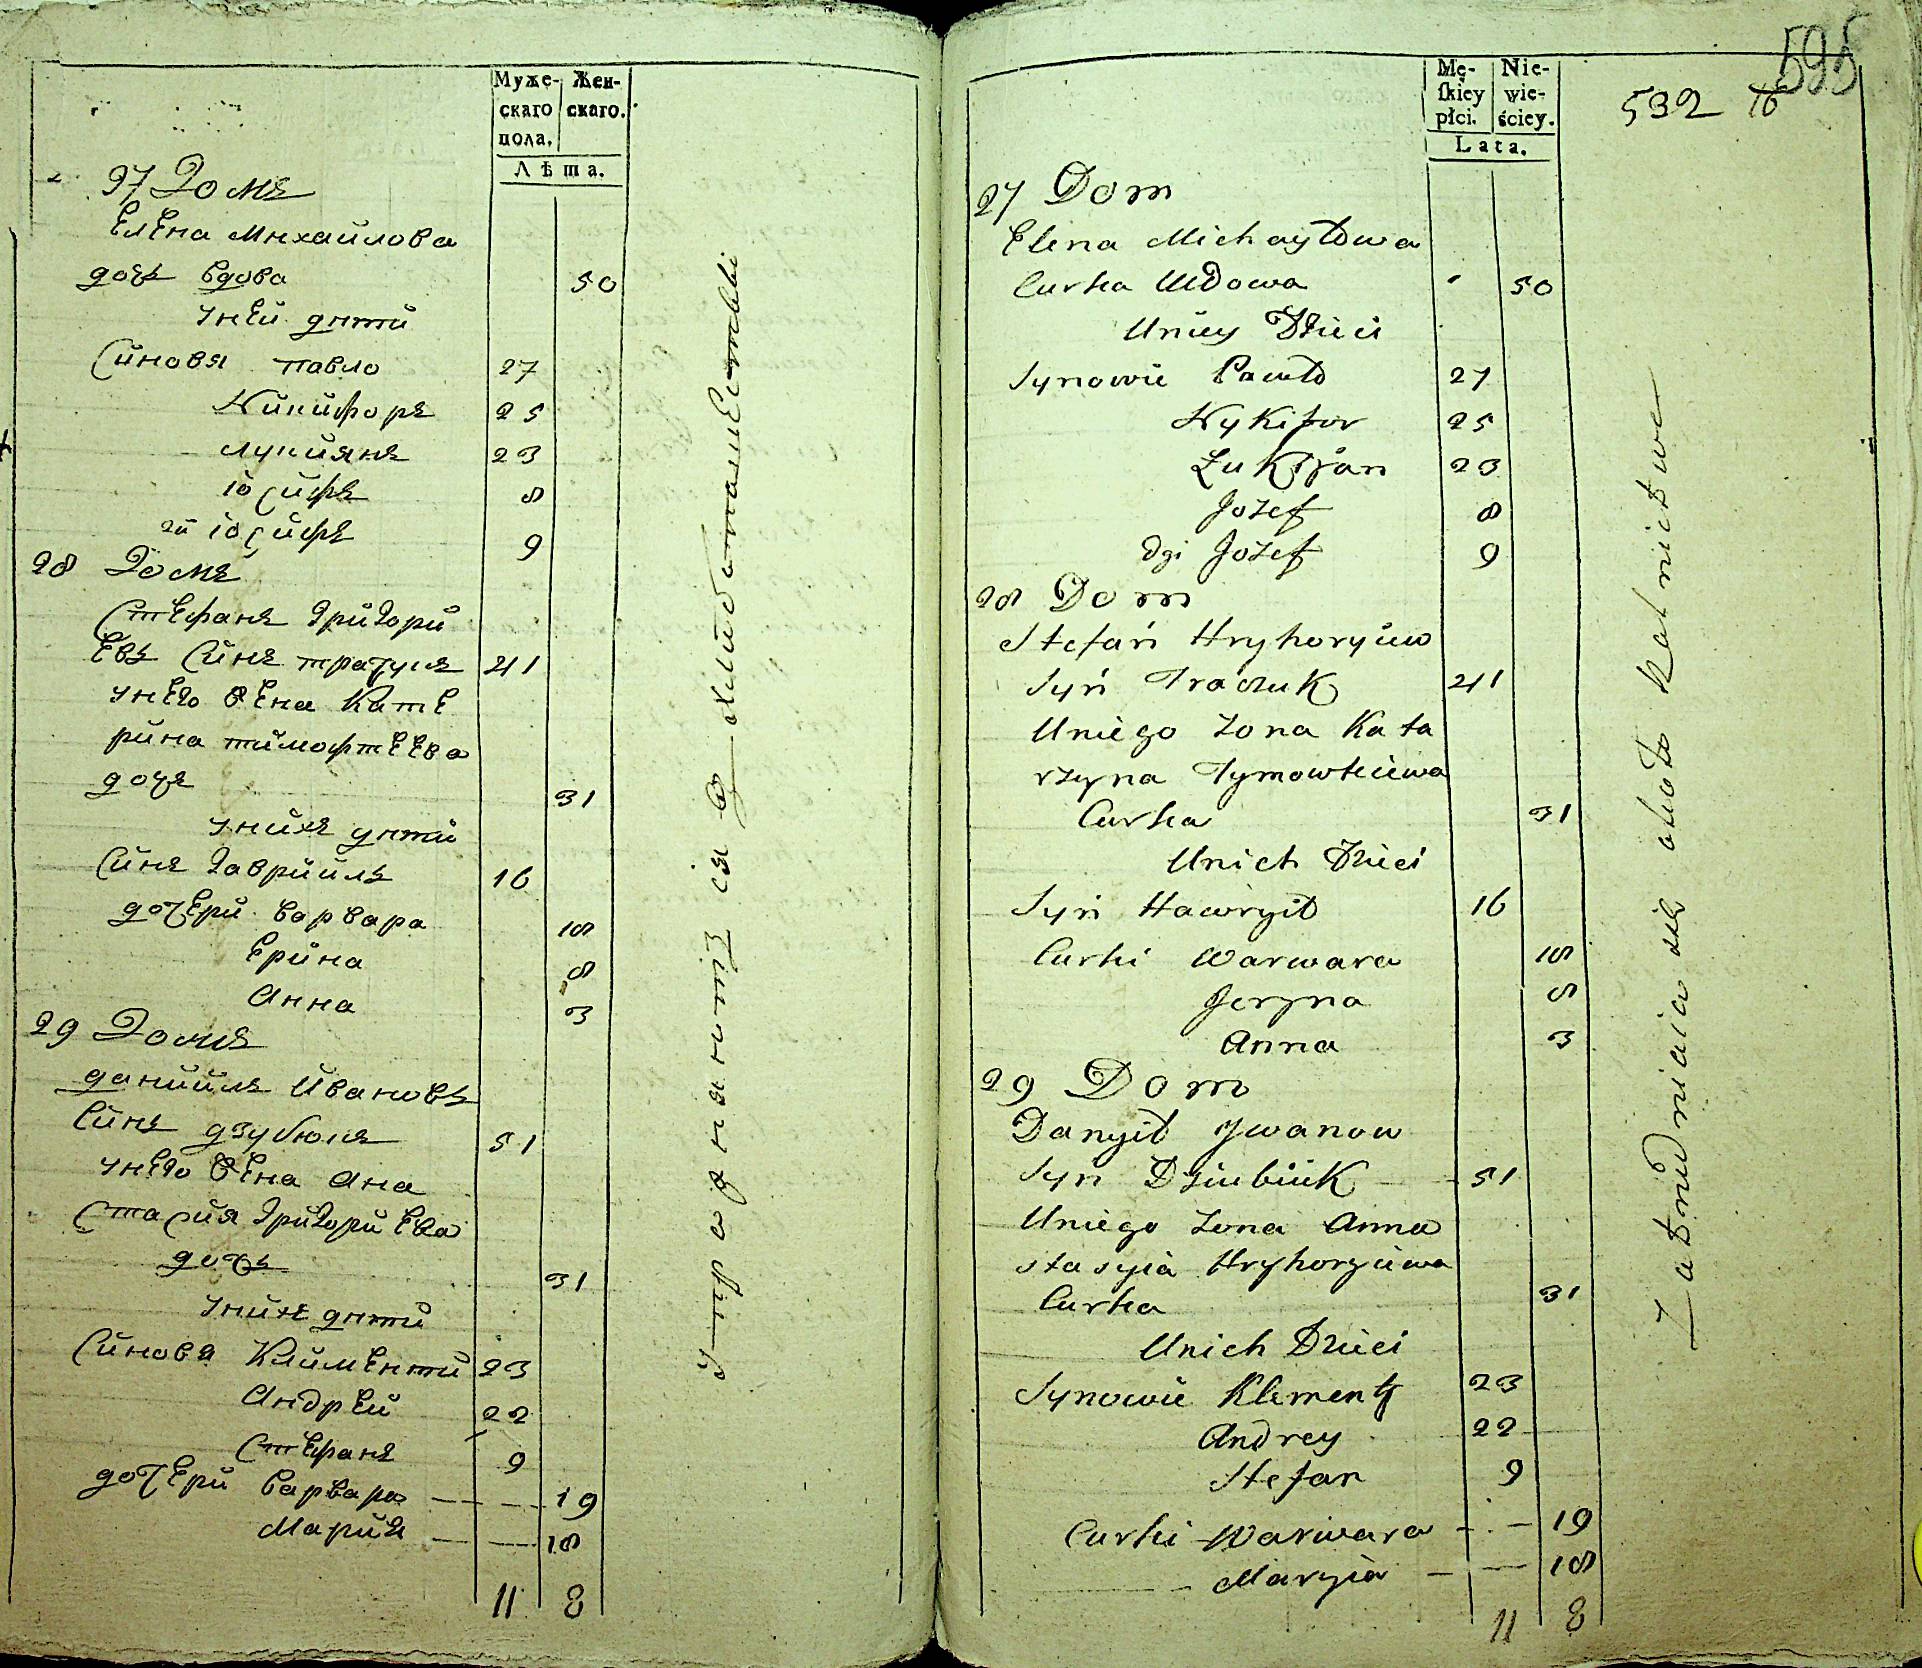 Муже-
скаго
пола.
Жен-
скаго.
Лѣта.
27 Домъ
Елена Михайлова
дочь вдова 50
уней дити
Синовя павло 27
Никифоръ 25
лукиянъ 23
іосифъ 8
2й іосифъ 9
28 Домъ
Стефанъ Григори
евъ синъ трачукъ 41
унего жена Кате
рина тимофтеева
дочъ 31
унихъ дити
Синъ Гаврийлъ 16
дочери варвара 18
Ерина 8
Анна 3
29 Домъ
данийлъ Ивановъ
Синъ дзубюкъ 51
унего жена Ана
стасия Григориева
дочь 31
унихъ дити
Синовя Климентий 23
Андрей 22
Стефанъ 9
дочери варвара 19
Мария 18
11 8
упражняютъ ся в хлиботашественні
595
532
Mę-
skiey
płci.
Nie-
wie-
ściey.
Lata.
27 Dom
Elena Michayłowa
Curka Wdowa 50
Uniey Dzieci
Synowie Pawło 27
Nykifor 25
Łukiian 23
Jozef 8
dgi Jozef 9
28 Dom
Stefan Hryhoryiew
Syn Traczuk 41
Uniego Zona Kata
rzyna Tymowteiewa
Curka 31
Unich Dzieci
Syn Hawryił 16
Curki Warwara 18
Jeryna 8
Anna 3
29 Dom
Danyił Jwanow
Syn Dziubiuk 51
Uniego Zona Anna
stasyia Hryhoryiewa
Curka 31
Unich Dzieci
Synowie Klementy 23
Andrey 22
Stefan 9
Curki Warwara 19
Maryia 18
11 8
Zatrudniaią się około Rolnictwa